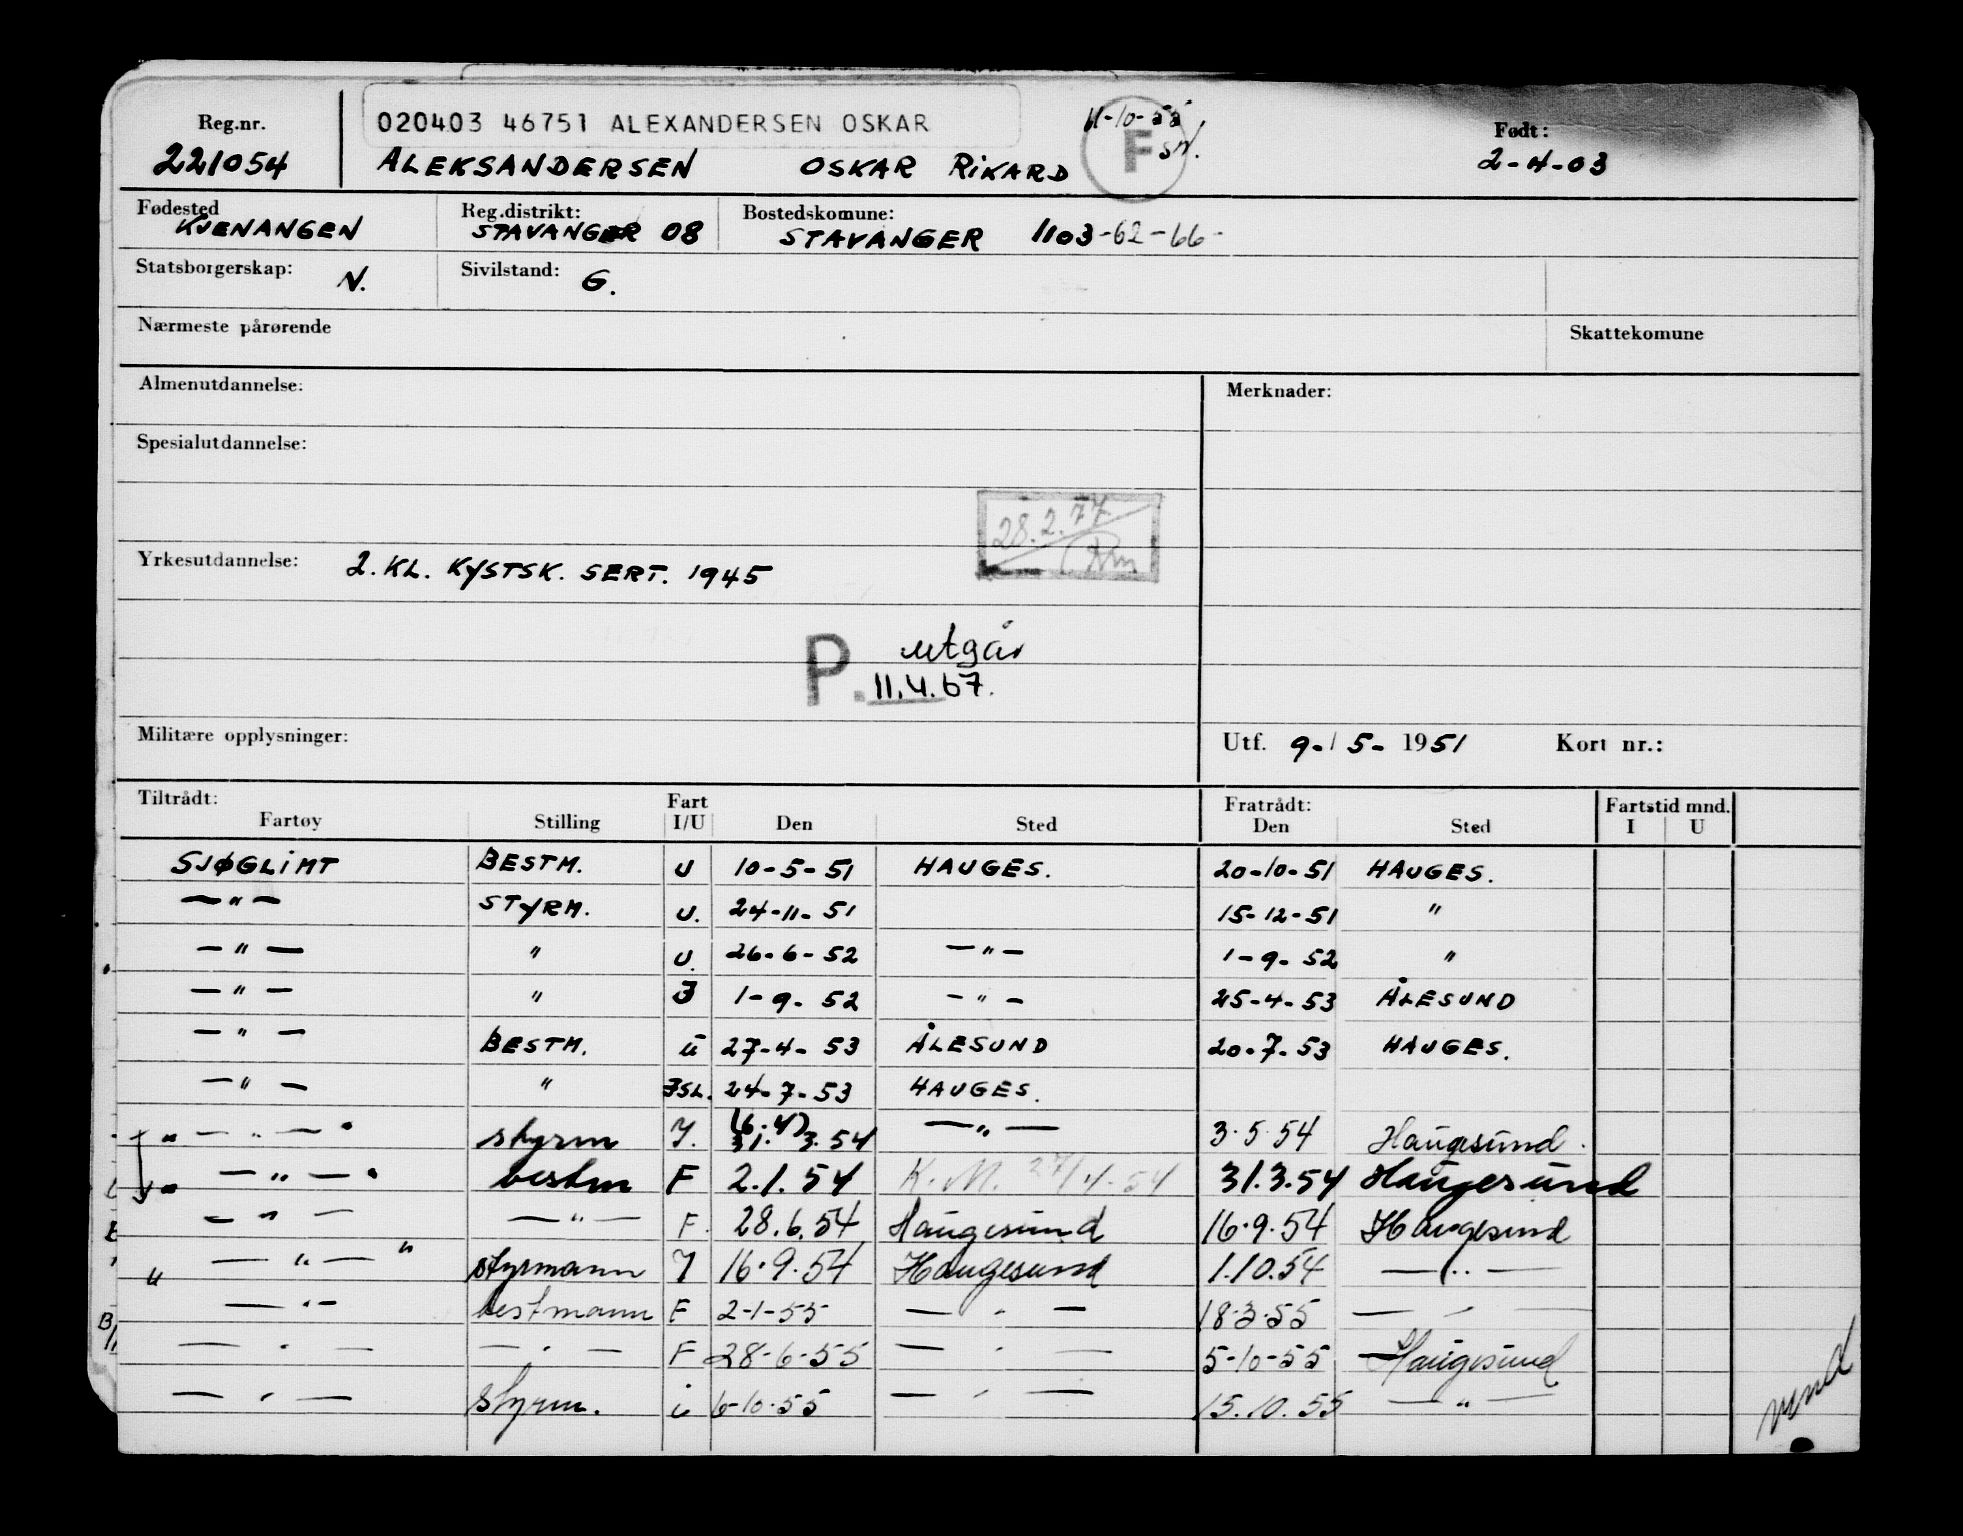 020403 46751 ALEXANDERSEN OSKAR
11-10-55
F
Reg.nr. Født:
221054 ALEKSANDERSEN OSKAR RIKARD 2-4-03
Fødested Reg.distrikt: Bostedskomune:
KJENANGEN STAVANGER 08 STAVANGER 1103-62-66-
Statsborgerskap: N. Sivilstand: G.
Nærmeste pårørende Skattekomune
Almenutdannelse: Merknader:
Spesialutdannelse:
28.2.77
Yrkesutdannelse: 2. KL. KYSTSK. SERT. 1945
P. utgår
11.4.67.
Militære opplysninger: Utf. 9-5-1951 Kort nr.:
Tiltrådt: Fart Fratrådt: Fartstid mnd.
Fartøy Stilling I/U Den Sted Den Sted I U
SJØGLIMT BESTM. U 10-5-51 HAUGES. 20-10-51 HAUGES.
—"— STYRM. U. 24-11-51 15-12-51 "
—"— " U. 26-6-52 —"— 1-9-52 "
—"— " I 1-9-52 —"— 25-4-53 ÅLESUND
—"— BESTM. u 27-4-53 ÅLESUND 20-7-53 HAUGES.
—"— " ISL. 24-7-53 HAUGES.
" —"— styrm I. (6.4) 31.3.54 —"— 3.5.54 Haugesund.
" —"— bestm F 2.1.54 K.M. 27/4-54 31.3.54 Haugesund
—"— —"— F. 28.6.54 Haugesund 16.9.54 Haugesund
" —"— " styrmann I 16.9.54 Haugesund 1.10.54 —"—
—"— bestmann F 2-1-55 —"— 18-3-55 —"—
—"— —"— F 28-6-55 —"— 5-10-55 Haugesund
—"— styrm. i 6-10-55 —"— 15.10.55 —"—
vend